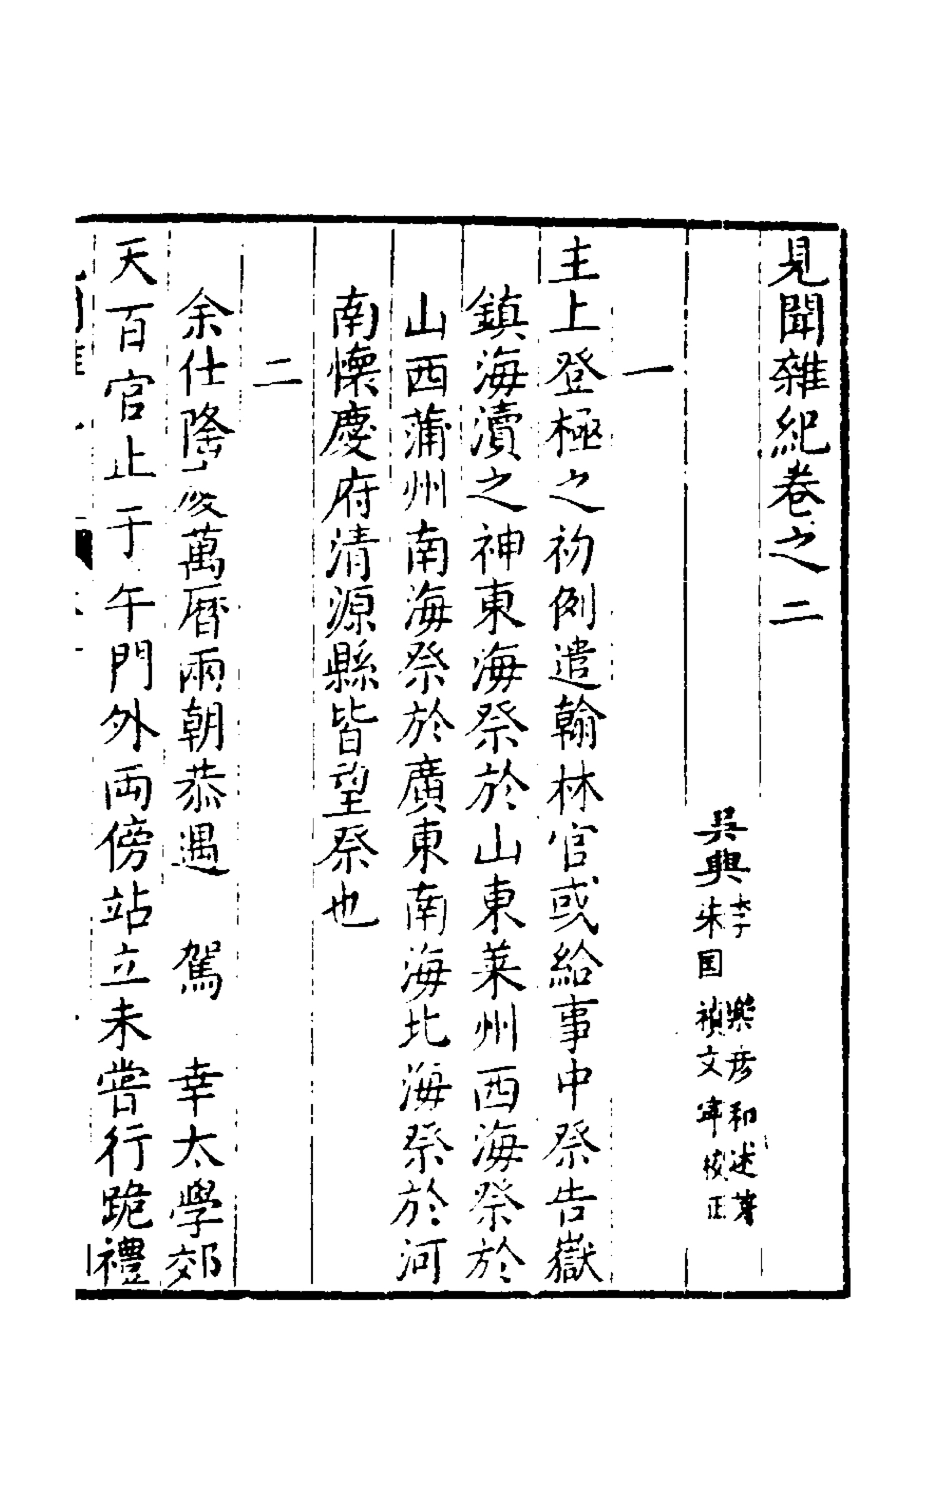 見聞雜紀卷之二
吳興李 樂彦和述著
朱国禎文寧校正
一
主上登極之初例遣翰林官或給事中祭告嶽
鎮海瀆之神東海祭於山東萊州西海祭於
山西蒲州南海祭於廣東南海北海祭於河
南懷慶府清源縣皆望祭也
二
余仕隆慶萬曆兩朝恭遇 駕 幸太學郊
天百官止于午門外両傍站立未嘗行跪禮